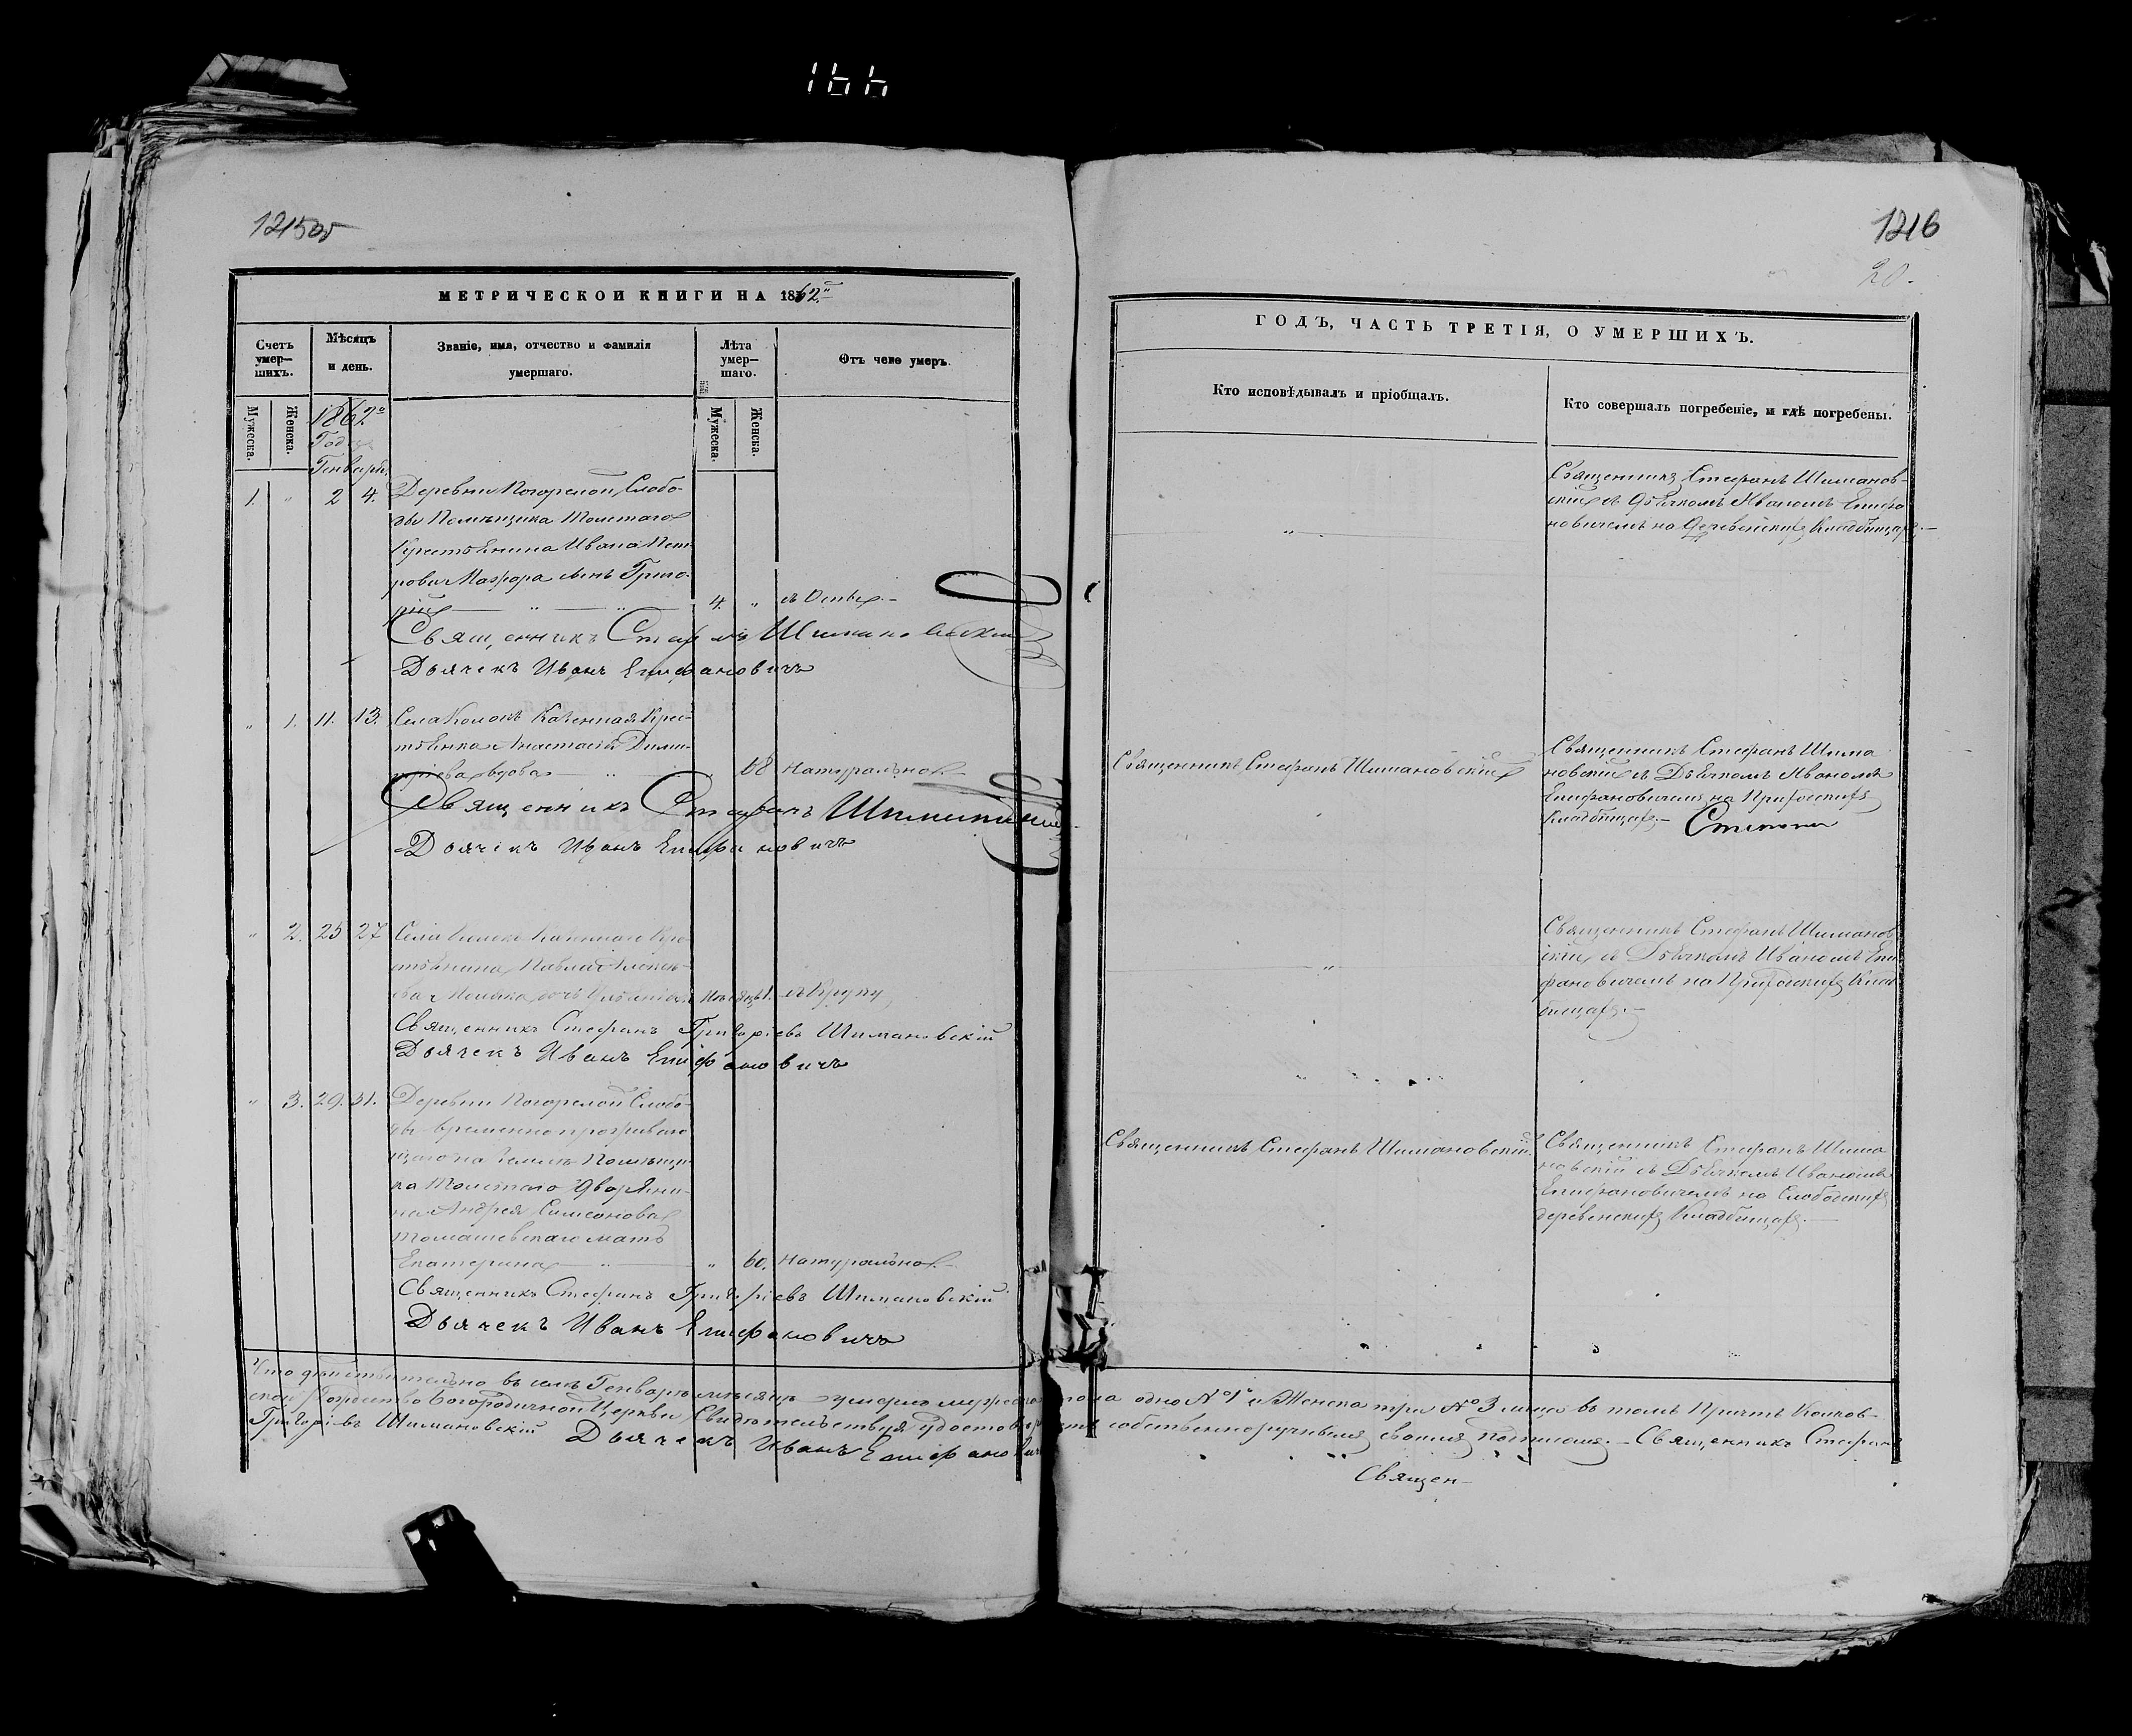 166
1215об
1216
20.
МЕТРИЧЕСКОЙ КНИГИ НА 1862й
ГОДЪ, ЧАСТЬ ТРЕТІЯ, О УМЕРШИХЪ.
Счетъ умер-шихъ.
Мѣсяцъ и день.
Званіе, имя, отчество и фамилія
умершаго.
Лѣта умер-шаго.
Отъ чего умеръ.
Кто исповѣдывалъ и пріобщалъ.
Кто совершалъ погребеніе, и гдѣ погребены.
Мужеска.
Женска.
Мужеска.
Женска.
1862го
Года
Генварь.
1. " 2 4. Деревни Погорелой Слобо-
ды Помѣщика Толстаго
Крестьянина Ивана Пет-
рова сынъ Григо-
рій — " — " — 4. " съ Оспы. —
Священникъ Стефанъ Шимановскій
Дьячекъ Иванъ Епифановичъ
"
Священникъ Стефанъ Шиманов-
скій съ Дьячкомъ Иваномъ Епифа
новичемъ на Деревенскихъ Кладбищахъ. —
" 1. 11. 13. Села Казенная Крес-
тьянка Анастасія Дими-
тріева вдова — " — 68 Натурально. —
Священникъ Стефанъ Шимановскій
Дьячекъ Иванъ Епифановичъ
Священникъ Стефанъ Шимановскій
Священникъ Стефанъ Шима
новскій съ Дьячкомъ Иваномъ
Епифановичемъ на Приходскихъ
Кладбищахъ. —
" 2. 25 27 Села Казеннаго Кре-
стьянина Павла Алексѣ-
ева дочь мѣсяцъ 1. съ Крупу
Священникъ Стефанъ Григоріевъ Шимановскій
Дьячекъ Иванъ Епифановичъ
"
Священникъ Стефанъ Шиманов
скій съ Дьячкомъ Иваномъ Епи
фановичемъ на Приходскихъ Клад
бищахъ. —
" 3. 29. 31. Деревни Погорелой Слобо-
ды временно проживаю
щаго на землѣ Помѣщи-
ка Толстаго Дворяни-
на Андрея Симеонова
Томашевскаго мать
Екатерина — " — " 60. Натурально. —
Священникъ Стефанъ Григоріевъ Шимановскій
Дьячекъ Иванъ Епифановичъ
Священникъ Стефанъ Шимановскій.
Священникъ Стефанъ Шима
новскій съ Дьячкомъ Иваномъ
Епифановичемъ на Слободскихъ
деревенскихъ Кладбищахъ. —
Что дѣйствительно въ семъ Генварѣ мѣсяцѣ умерло мужеска пола одно № 1 и Женска три № 3 лица въ томъ Причтъ
ской Рождество Богородичной Церкви Свидѣтельствуя удостовѣряетъ собственноручнымъ своимъ подписомъ. — Священникъ Стефанъ
Григоріевъ Шимановскій Дьячекъ Иванъ Епифановичъ
Священ-